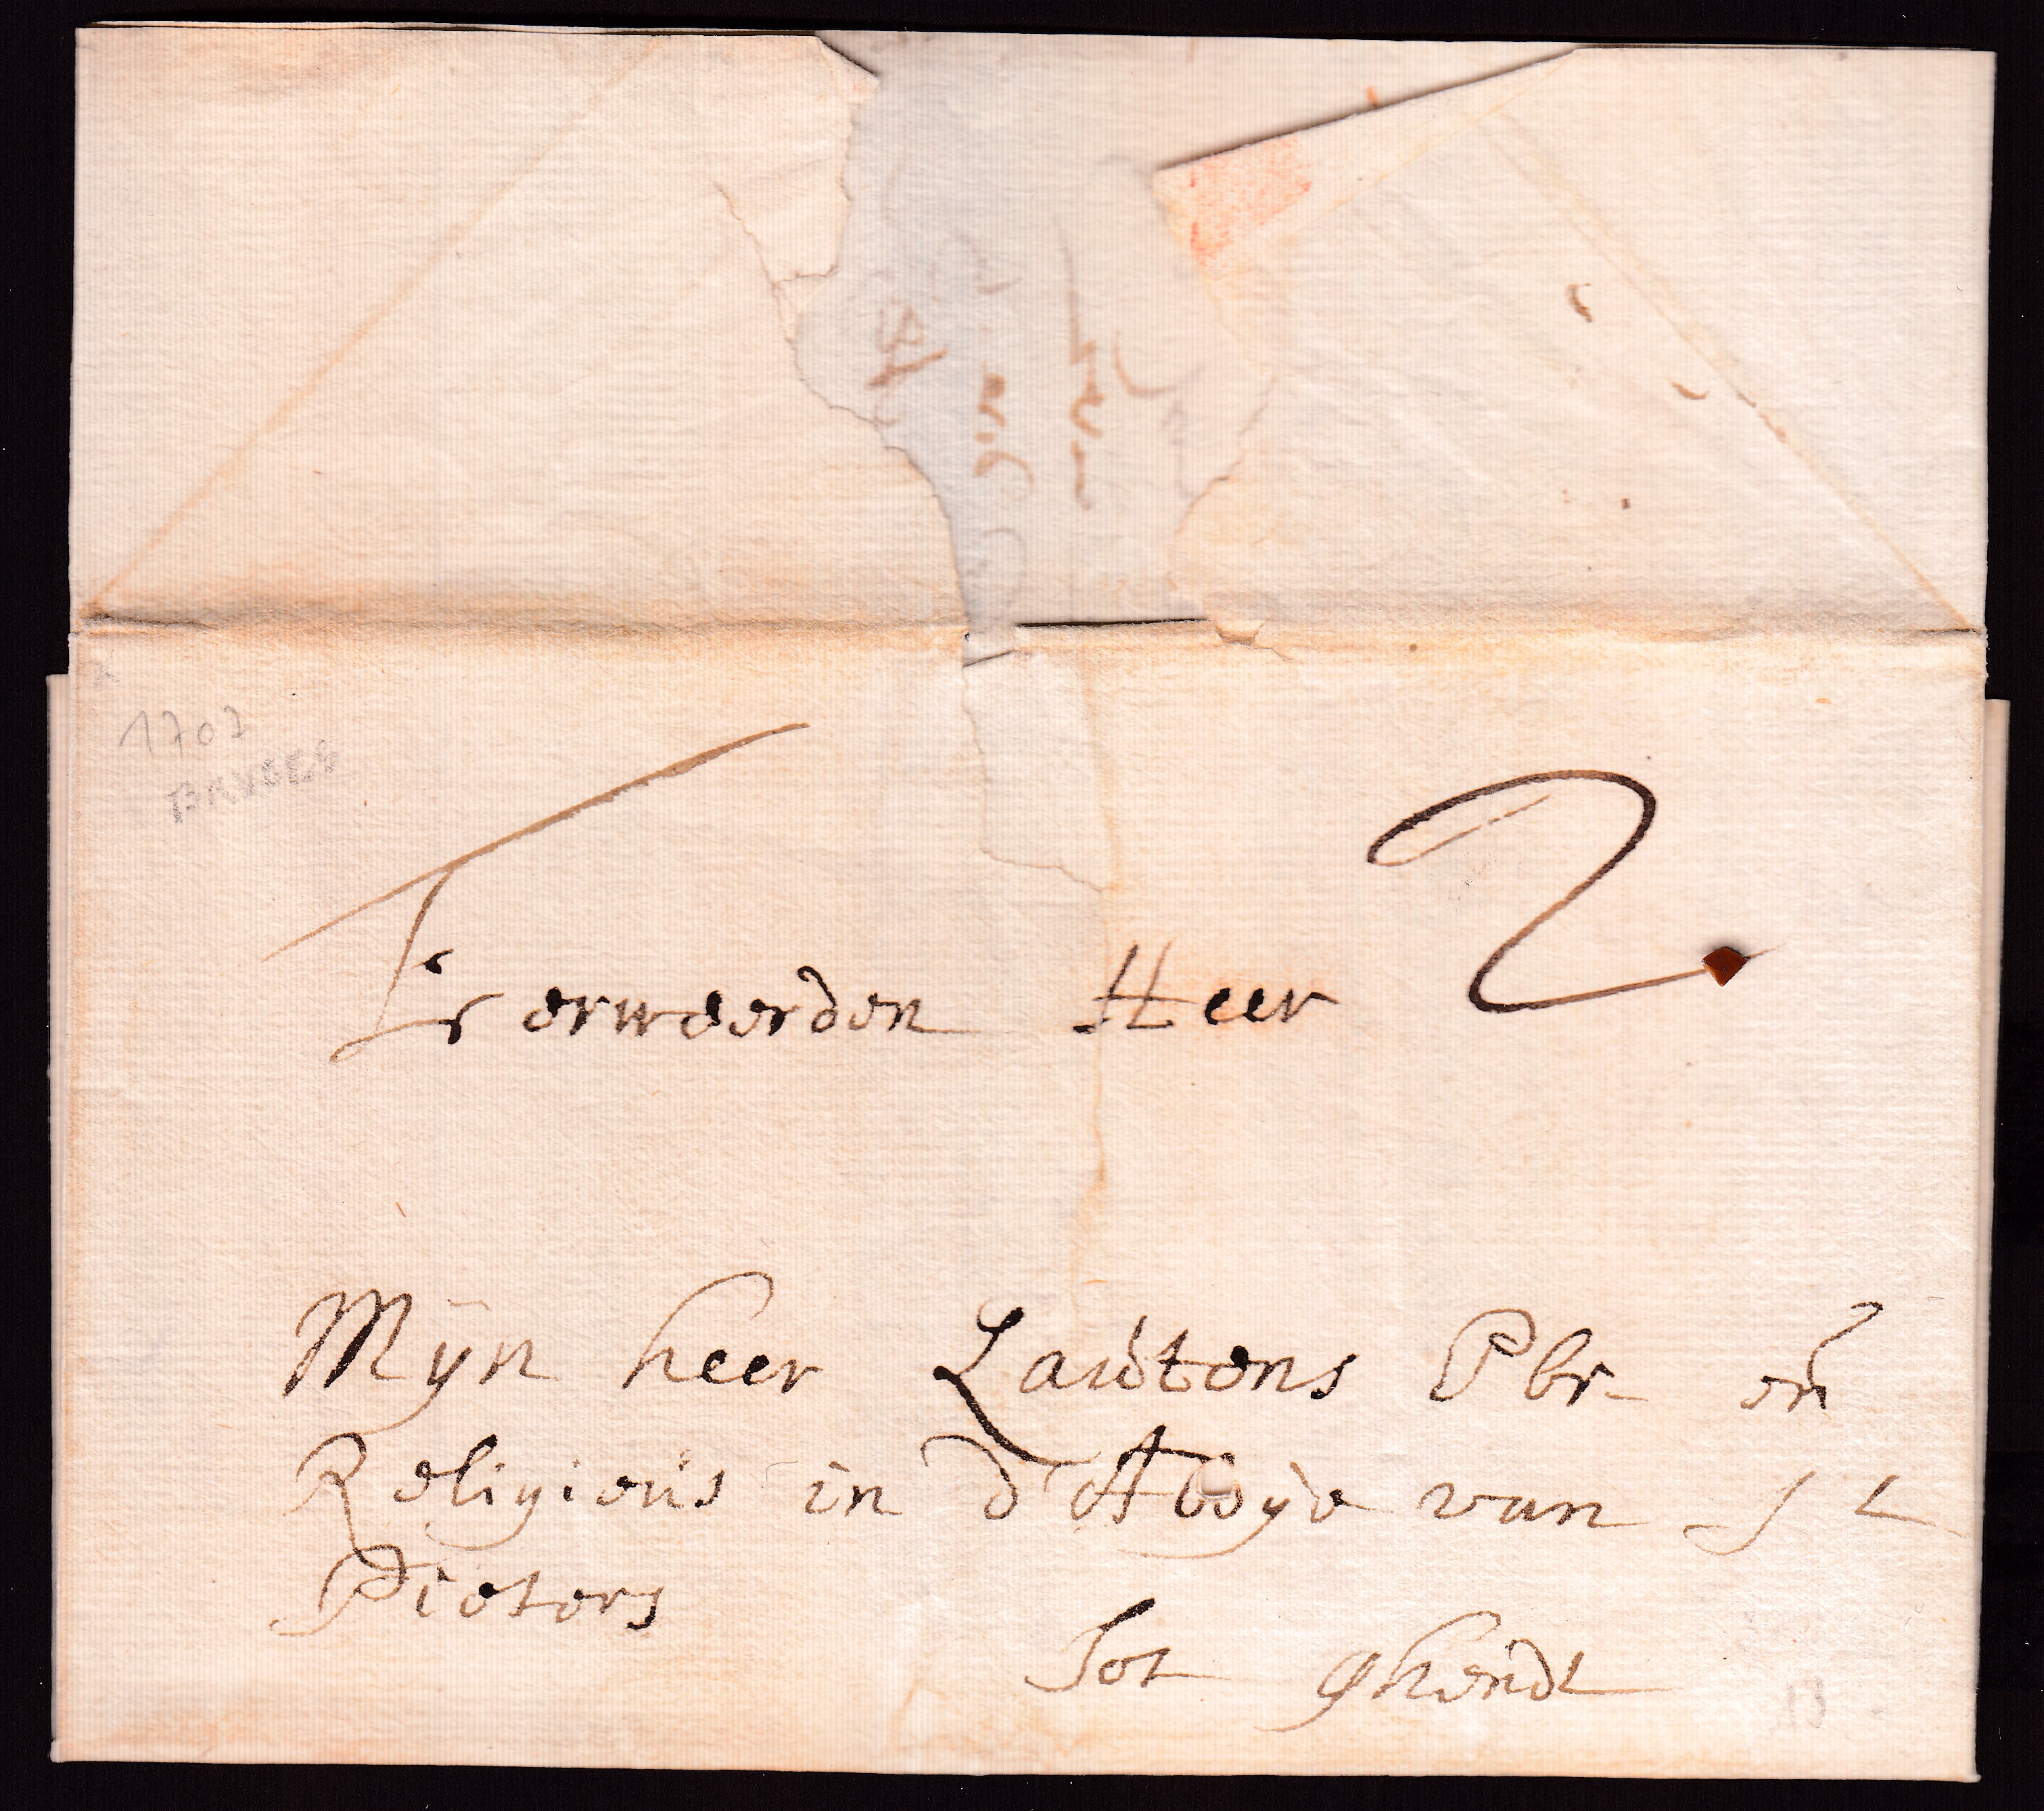 1702
BRUGES
2
Eerweerden Heer
Mÿn heer Laútens Pbr en̄
Religieús in d'Abdye van St
Pieters
Tot Ghendt